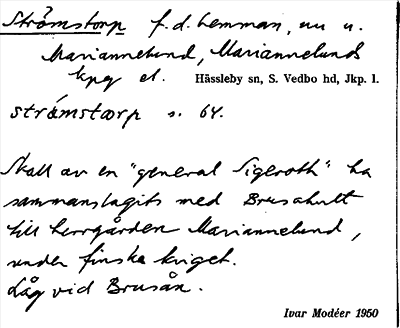 Strömstorp f.d. hemman, nu u.
Mariannelund, Mariannelunds
kpg et. Hässleby sn, S. Vedbo hd, Jkp. l.
strǻmstorp s. 64.
Skall av en "general Sigeroth" ha
sammanslagits med Brusahult
till herrgården Mariannelund,
under finska kriget.
Låg vid Brusån.
Ivar Modéer 1950